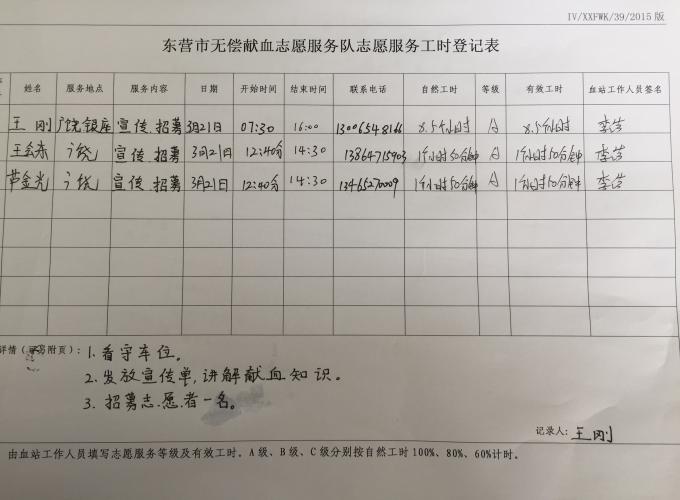 IV/XXFWK/39/2015 版
东营市无偿献血志愿服务队志愿服务工时登记表
姓名 服务地点 服务内容 日期 开始时间 结束时间 联系电话 自然工时 等级 有效工时 血站工作人员签名
王刚 广饶银座 宣传.招募 3月21日 07:30 16:00 13006548166 8.5个小时 A 8.5个小时
广饶 宣传.招募 3月21日 12:40分 14:30 13864715903 1个小时50分钟 A 1个小时50分钟
芦金光 广饶 宣传.招募 3月21日 12:40分 14:30 13465270009 1个小时50分钟 A 1个小时50分钟
详情(可另附页):1.看守车位。
2.发放宣传单,讲解献血知识。
3.招募志愿者一名。
记录人:王刚
由血站工作人员填写志愿服务等级及有效工时。A 级、B 级、C 级分别按自然工时 100%、80%、60%计时。